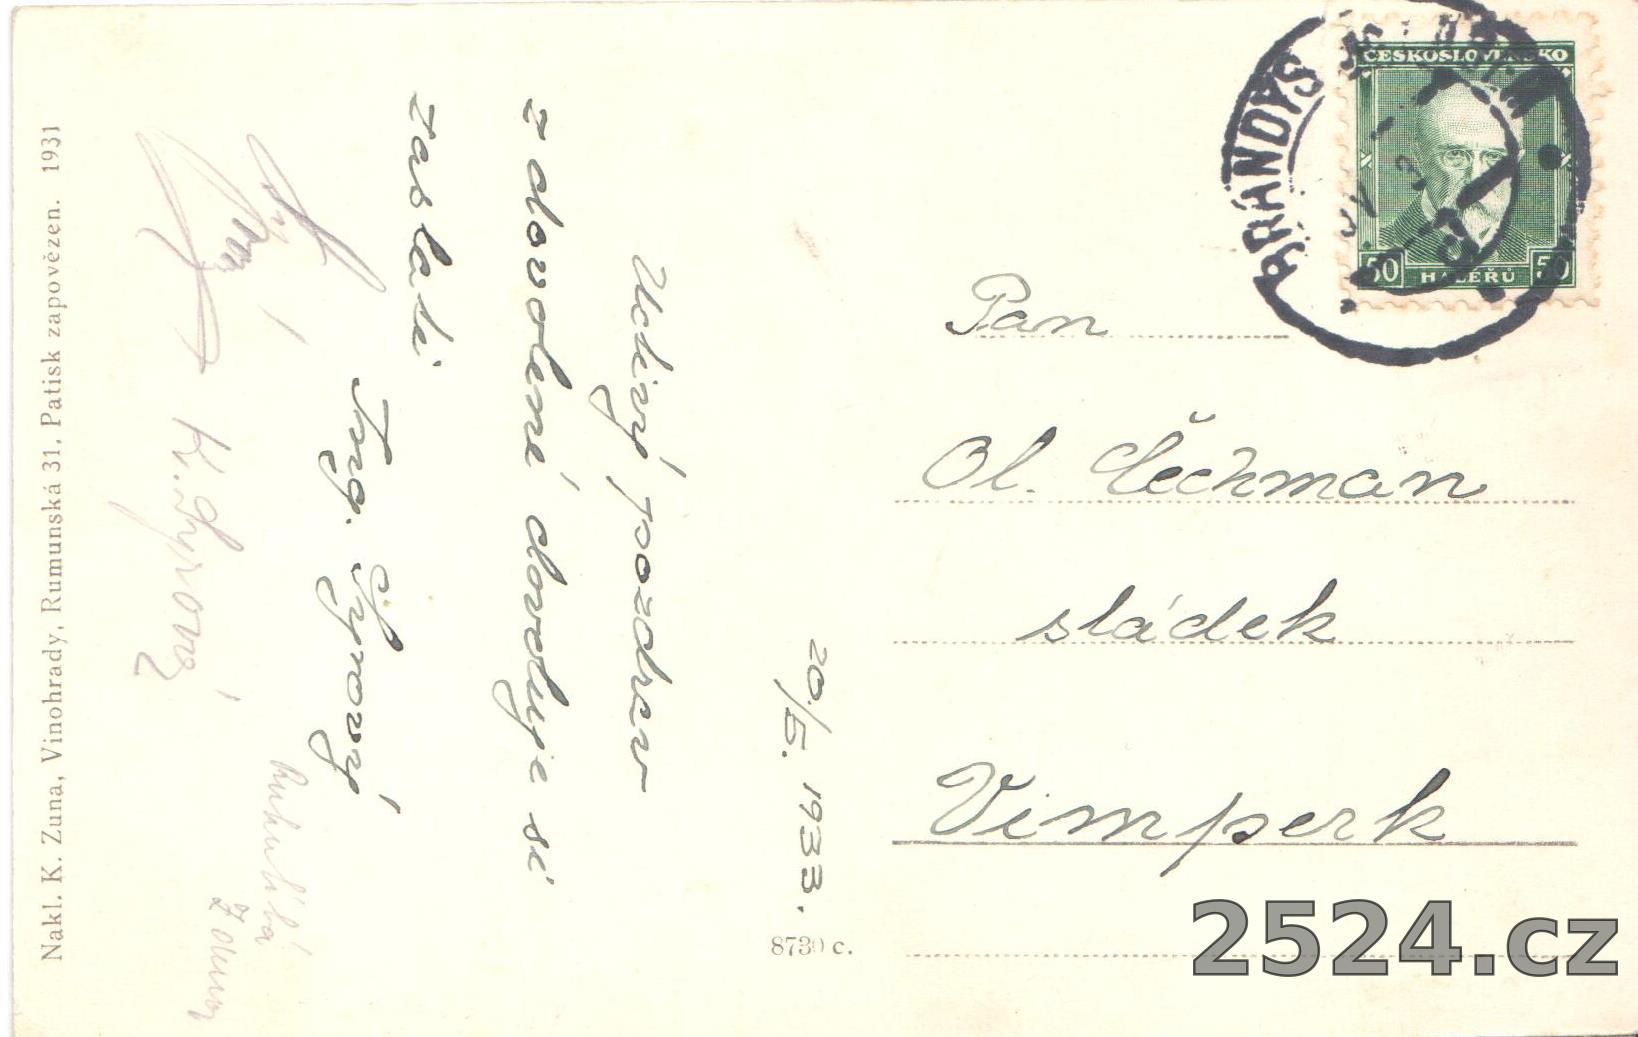 Nakl. K. Zuna, Vinohrady, Rumunská 31. Patisk zapovězen. 1931
Uctivý pozdrav
z dovolené dovoluje si
zaslati
Ing. Syrový
K. Syrový
20./5. 1933.
8730 c.
BRANDÝS
ČESKOSLOVENSKO
50 HALÉŘŮ 50
Pan
Ol. Čechman
sládek
Vimperk
2524.cz